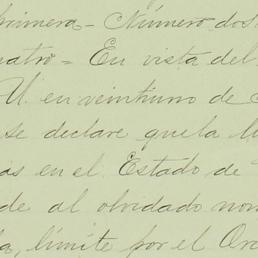 primera - Número dos
cuatro = En vista del
U. en veintiuno de
se declare que la lu
as en el Estado de
de al olvidado nom
la, límite por el Ora